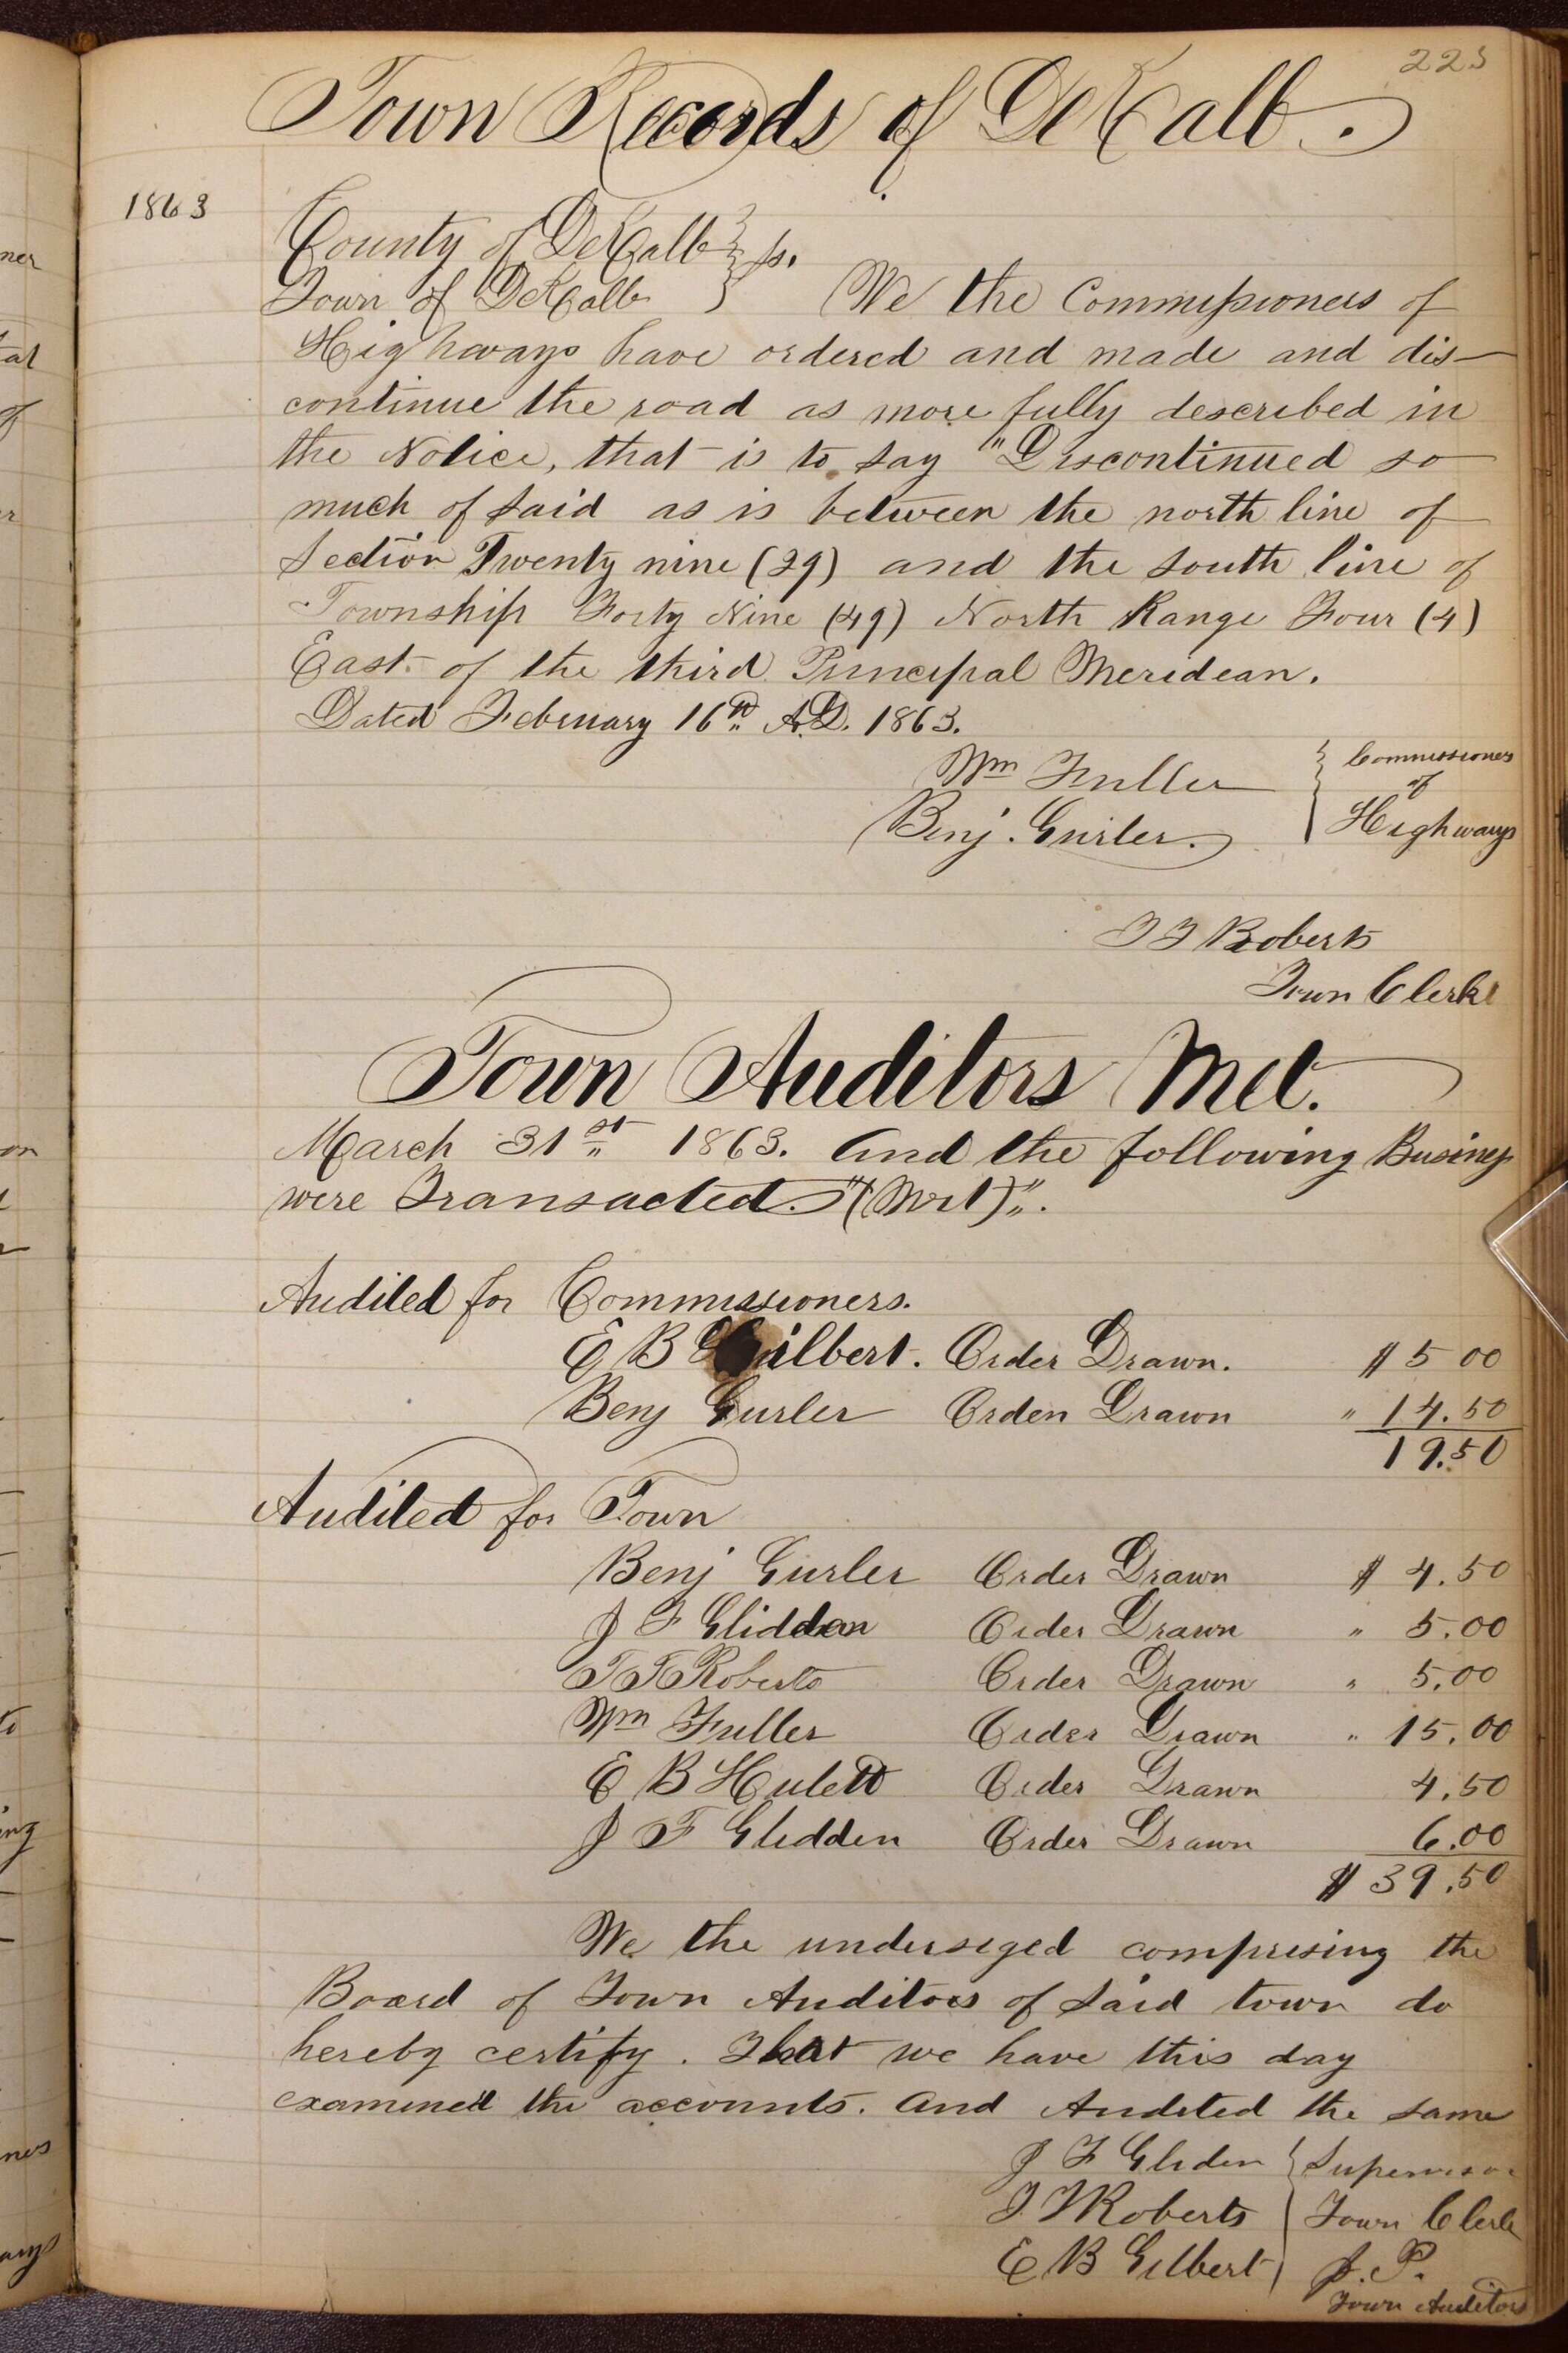 223
Town Records of DeKalb.
1863
County of DeKalb } ss.
Town of DeKalb } We the Commissioners of
Highways have ordered and made and dis-
continue the road as more fully described in
the Notice, that is to say "Discontinued so
much of said as is between the north line of
Section Twenty nine (29) and the south line of
Township Forty Nine (49) North Range Four (4)
East of the third Principal Meridean.
Dated February 16th A.D. 1863.
Wm Fuller } Commissioners
of
Benj. Gurler. } Highways
T F Roberts
Town Clerk
Town Auditors Met.
March 31st 1863. And the following Business
were Transacted. "(Met)".
Audited for Commissioners.
E B Gilbert. Order Drawn. $ 5 00
Benj Gurler Order Drawn " 14.50
19.50
Audited for Town
Benj Gurler Order Drawn $ 4.50
J F Glidden Order Drawn " 5.00
T F Roberts Order Drawn " 5.00
Wm Fuller Order Drawn " 15.00
E B Hulett Order Drawn 4.50
J F Glidden Order Drawn 6.00
$ 39.50
We the undersiged comprising the
Board of Town Auditors of said town do
hereby certify. That we have this day
examined the accounts. And Audited the same
J F Gliden } Supervisor
T F Roberts } Town Clerk
E B Gilbert } J. P.
Town Auditors